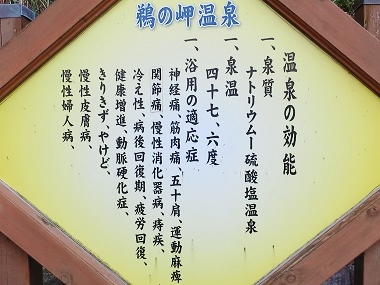 鵜の岬温泉
温泉の効能
一、泉質
ナトリウムー硫酸塩温泉
一、泉温
四十七、六度
一、浴用の適応症
神経痛、筋肉痛、五十肩、運動麻痺
関節痛、慢性消化器病、痔疾、
冷え性、病後回復期、疲労回復、
健康増進、動脈硬化症、
きりきず、やけど、
慢性皮膚病、
慢性婦人病、